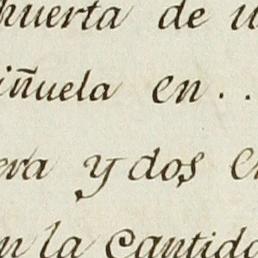 huerta de u
iñuela en . .
era y dos e
n la cantida